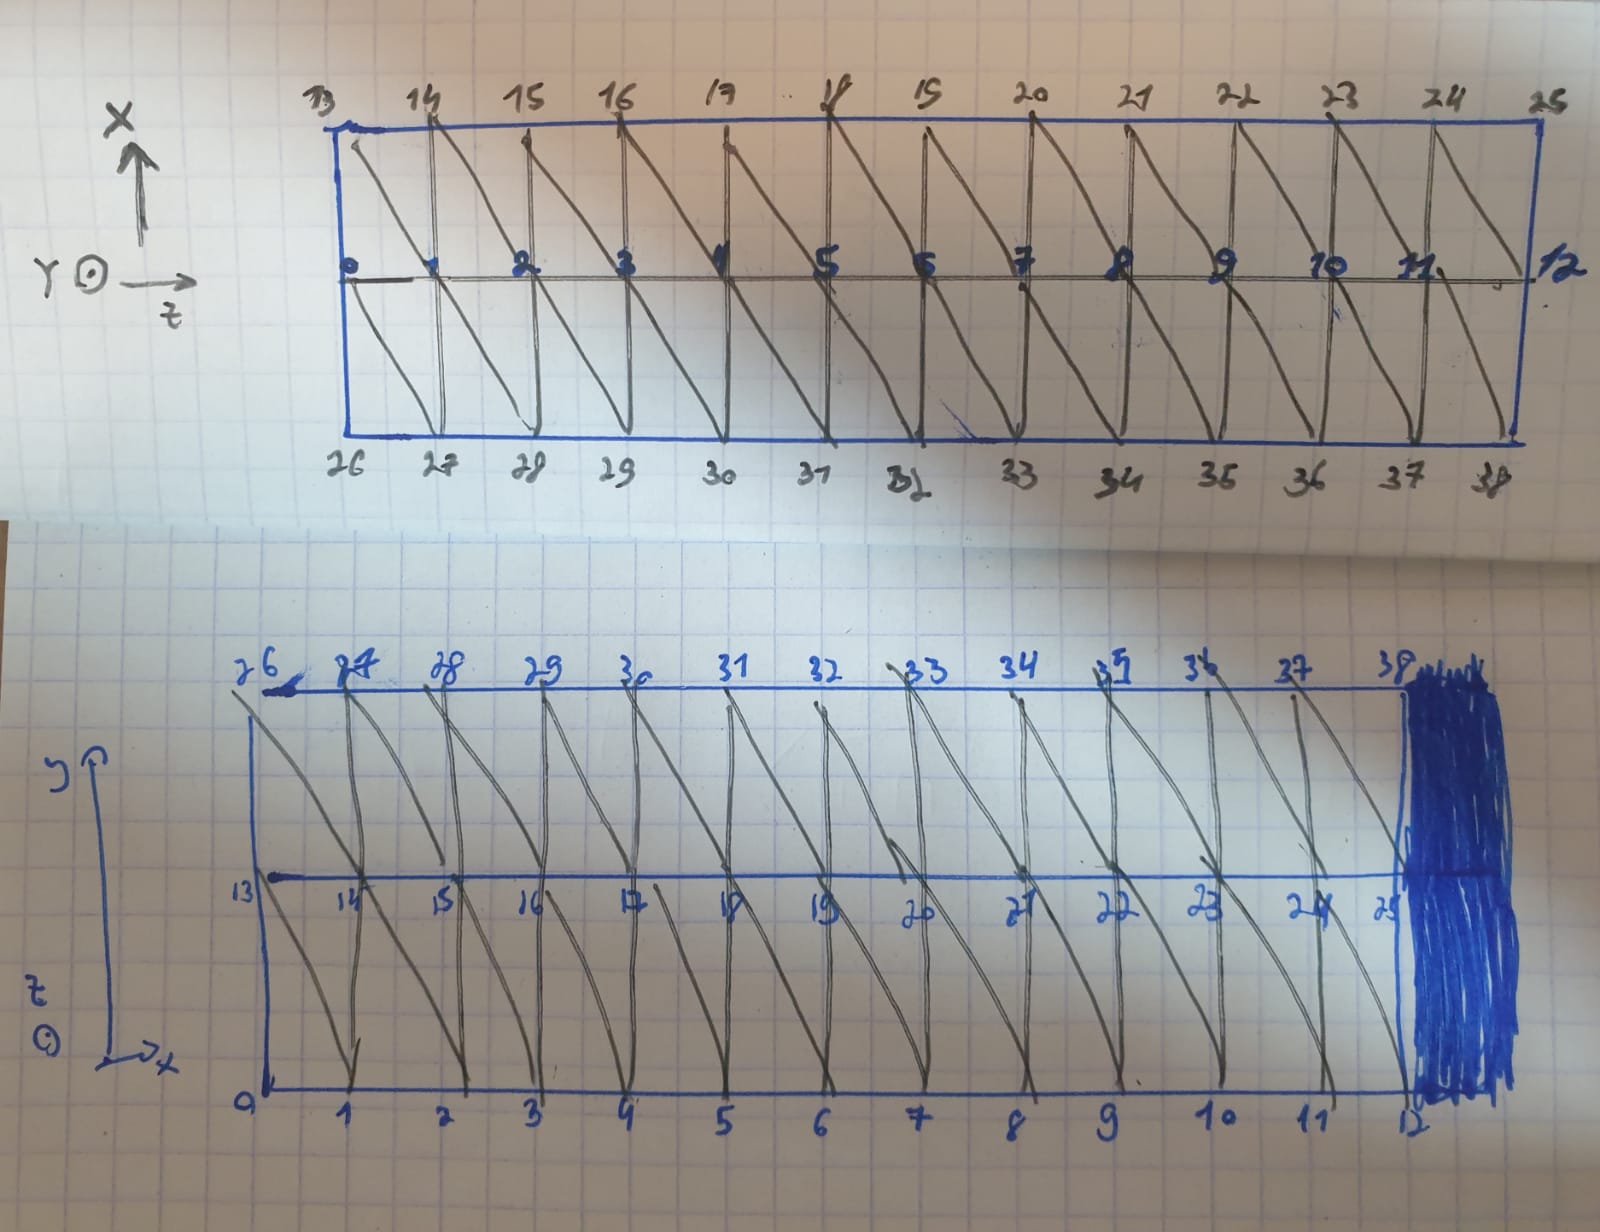 13 14 15 16 17 18 19 20 21 22 23 24 25
X
Y z
0 1 2 3 4 5 6 7 8 9 10 11 12
26 27 28 29 30 31 32 33 34 35 36 37 38
26 27 28 29 30 31 32 33 34 35 36 37 38
y
13 14 15 16 17 18 19 20 21 22 23 24 25
z
x
0 1 2 3 4 5 6 7 8 9 10 11 12